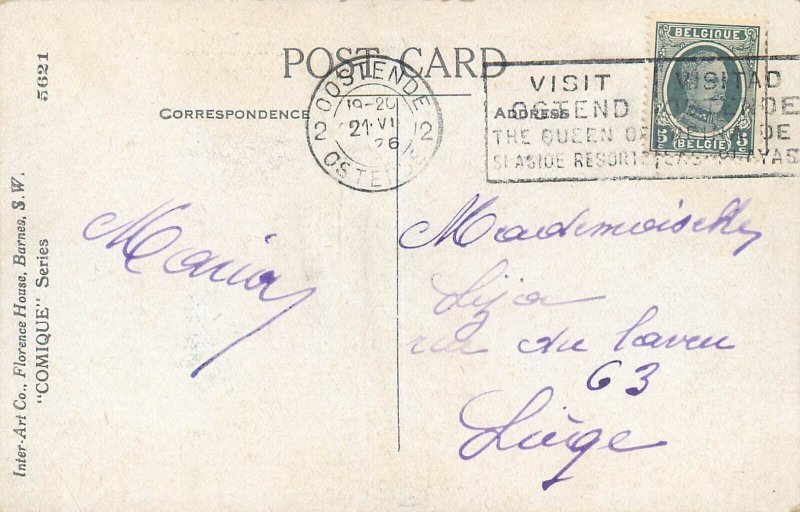 POST CARD
CORRESPONDENCE
ADDRESS
OOSTENDE
2 19-20 2
21·VI
26
OSTENDE
VISIT
OSTEND
THE QUEEN OF
SEASIDE RESORTS
VISITAD
BELGIQUE
5 5
BELGIË
Inter-Art Co., Florence House, Barnes, S.W.
"COMIQUE" Series
5621
Maria
Mademoiselle
rue du laveu
63
Liège